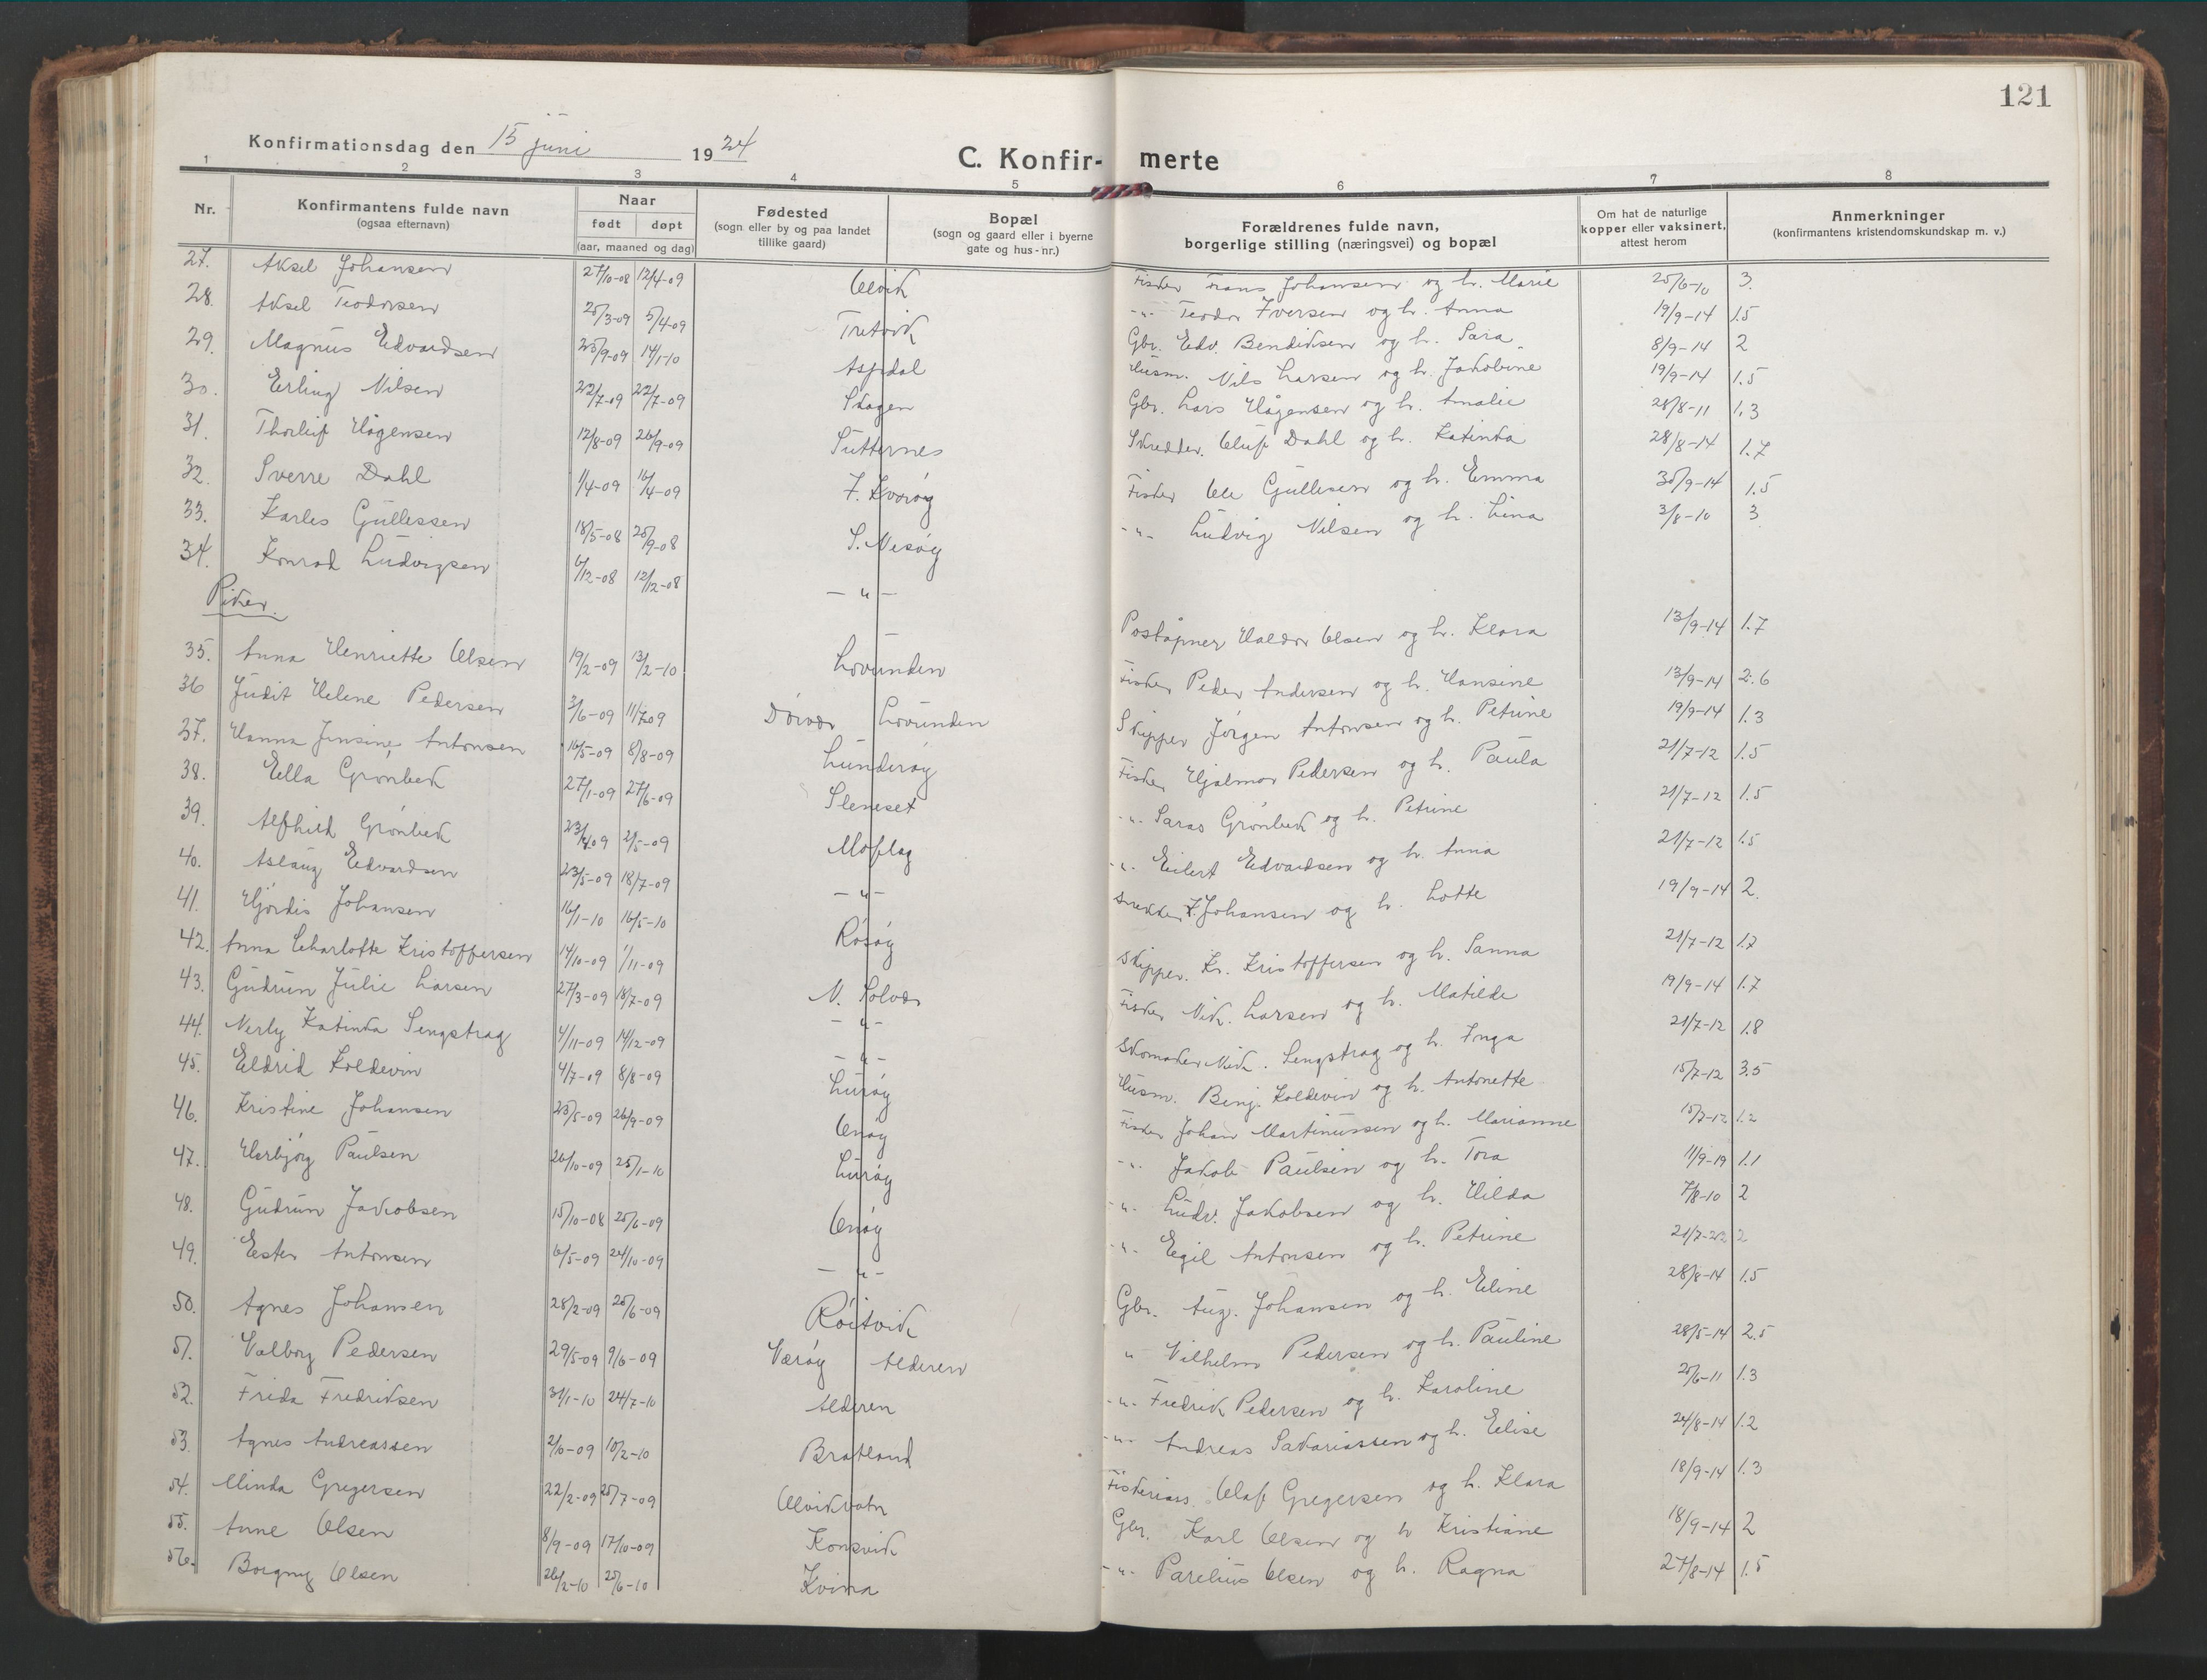 121
Konfirmationsdag den 15 juni 1924
C. Konfir- merte
1 2 3 4 5 6 7 8
Nr. Konfirmantens fulde navn (ogsaa efternavn) Naar født døpt (aar, maaned og dag) Fødested (sogn eller by og paa landet tillike gaard) Bopæl (sogn og gaard eller i byerne gate og hus-nr.) Forældrenes fulde navn, borgerlige stilling (næringsvei) og bopæl Om hat de naturlige kopper eller vaksinert, attest herom Anmerkninger (konfirmantens kristendomskundskap m. v.)
27. Aksel Johansen 27/10-08 12/4-09 Olvik Fisker Frans Johansen og h. Marie 25/6-10 3.
28. Aksel Teodorsen 25/3-09 5/4-09 Tretvik -"- Teodor Iversen og h. Anna 19/9-14 1.5
29. Magnus Edvardsen 25/9-09 14/1-10 Aspdal Gbr. Edv. Bendiksen og h. Sara. 8/9-14 2
30. Erling Nilsen 22/7-09 22/7-09 Skogen Husm. Nils Larsen og h. Jakobine 19/9-14 1.5
31. Thorleif Hågensen 12/8-09 26/9-09 Sutternes Gbr. Lars Hågensen og h. Amalie 28/8-11 1.3
32. Sverre Dahl 1/4-09 16/4-09 I. Kvarøy Skredder. Oluf Dahl og h. Katinka 28/8-14 1.7
33. Karles Gullessen 18/5-08 20/9-08 S. Nesøy Fisker Ole Gullesen og h. Emma 30/9-14 1.5
34. Konrad Ludvigsen 6/12-08 12/12-08 -"- -"- Ludvig Nilsen og h. Lina 3/8-10 3
Piker.
35. Anna Henriette Olsen 19/2-09 13/2-10 Lovunden Poståpner Haldor Olsen og h. Klara 13/9-14 1.7
36 Judit Helene Pedersen 3/6-09 11/7-09 Dørvær Lovunden Fisker Peder Andersen og h. Hansine 13/9-14 2.6
37. Hanna Jensine Antonsen 16/5-09 8/8-09 Lunderøy Skipper Jørgen Antonsen og h. Petrine 19/9-14 1.3
38. Ella Grønbek 27/1-09 27/6-09 Sleneset Fisker Hjalmar Pedersen og h. Paula 21/7-12 1.5
39. Alfhild Grønbek 23/4-09 2/5-09 Moflag -"- Saras Grønbek og h. Petrine 21/7-12 1.5
40. Aslaug Edvardsen 23/5-09 18/7-09 -"- -"- Eilert Edvardsen og h. Anna 21/7-12 1.5
41. Hjørdis Johansen 16/1-10 16/5-10 Røsøy Snekker F. Johansen og h. Lotte 19/9-14 2.
42. Anna Charlotte Kristoffersen 14/10-09 1/11-09 N. Solvær Skipper. Kr. Kristoffersen og h. Sanna 21/7-12 1.7
43. Gudrun Julie Larsen 27/3-09 18/7-09 -"- Fisker Nik. Larsen og h. Matilde 19/9-14 1.7
44. Nerly Katinka Sengstrag 4/11-09 14/12-09 -"- Skomaker Nik. Sengstrag og h. Inga 21/7-12 1.8
45. Eldrid Koldevin 4/7-09 8/8-09 Lurøy Husm. Benj. Koldevin og h. Antonette 15/7-12 3.5
46. Kristine Johansen 25/5-09 26/9-09 Onøy Fisker Johan Martinussen og h. Marianne 15/7-12 1.2
47. Herbjørg Paulsen 26/10-09 25/1-10 Lurøy -"- Jakob Paulsen og h. Tora 11/9-19 1.1
48. Gudrun Jakobsen 15/10-08 20/6-09 Onøy -"- Ludv. Jakobsen og h. Hilda 7/8-10 2
49. Ester Antonsen 6/5-09 24/10-09 -"- -"- Egil Antonsen og h. Petrine 21/7-22 2
50. Agnes Johansen 28/2-09 20/6-09 Røitvik Gbr. Aug. Johansen og h. Eline 28/8-14 1.5
51. Valborg Pedersen 29/5-09 9/6-09 Værøy Alderen " Vilhelm Pedersen og h. Pauline 28/5-14 2.5
52. Frida Fredriksen 31/1-10 24/7-10 Alderen -"- Fredrik Pedersen og h. Karoline 20/6-11 1.3
53. Agnes Andreassen 2/10-09 10/2-10 Bratland -"- Andreas Sakariassen og h. Elise 24/8-14 1.2
54. Minda Gregersen 22/2-09 25/7-09 Olvikvatn Fiskerias. Olaf Gregersen og h. Klara 18/9-14 1.3
55. Anne Olsen 8/9-09 17/10-09 Konsvik Gbr. Karl Olsen og h Kristiane 18/9-14 2
56. Borgny Olsen 26/2-10 20/6-10 Kvina -"- Parelius Olsen og h. Ragna 27/8-14 1.5